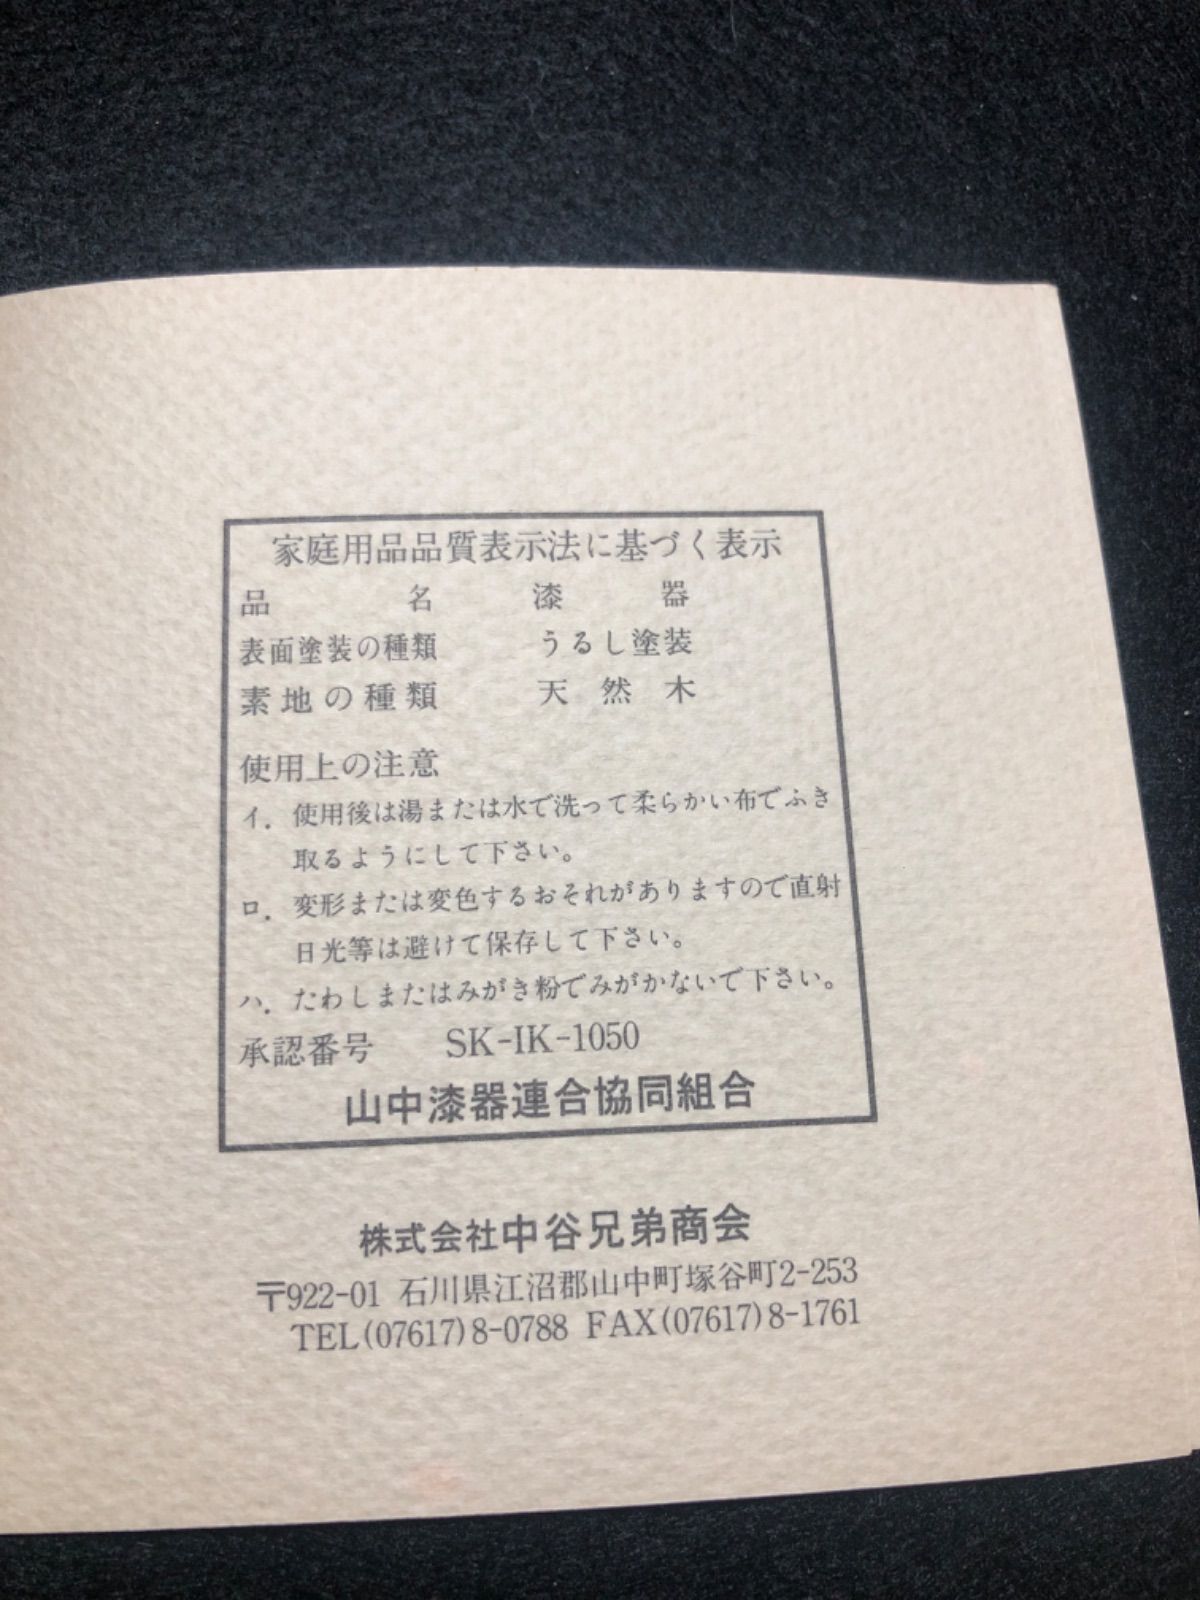 家庭用品品質表示法に基づく表示
品名 漆器
表面塗装の種類 うるし塗装
素地の種類 天然木
使用上の注意
イ．使用後は湯または水で洗って柔らかい布でふき
取るようにして下さい。
ロ．変形または変色するおそれがありますので直射
日光等は避けて保存して下さい。
ハ．たわしまたはみがき粉でみがかないで下さい。
承認番号 SK-IK-1050
山中漆器連合協同組合
株式会社中谷兄弟商会
〒922-01 石川県江沼郡山中町塚谷町2-253
TEL(07617)8-0788 FAX(07617)8-1761